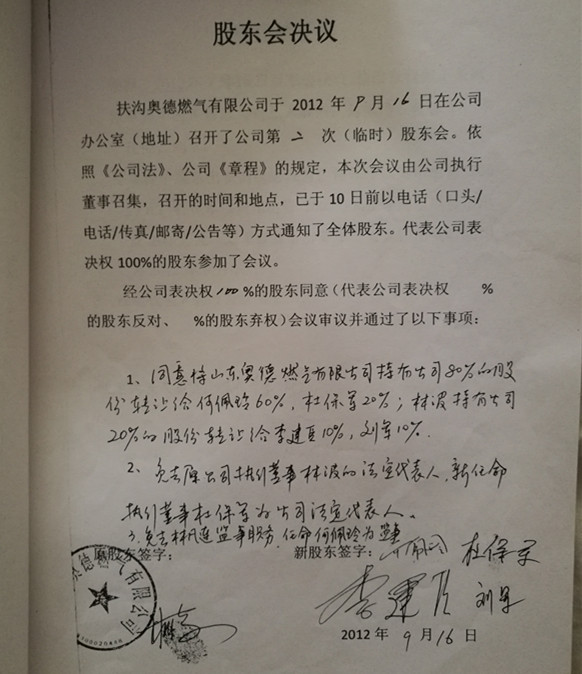 股东会决议
扶沟奥德燃气有限公司于 2012 年 9 月 16 日在公司
办公室（地址）召开了公司第 二 次（临时）股东会。依
照《公司法》、公司《章程》的规定，本次会议由公司执行
董事召集，召开的时间和地点，已于 10 日前以电话（口头/
电话/传真/邮寄/公告等）方式通知了全体股东。代表公司表
决权 100%的股东参加了会议。
经公司表决权 100 %的股东同意（代表公司表决权 %
的股东反对、 %的股东弃权）会议审议并通过了以下事项：
1、同意将山东奥德燃气有限公司持有公司80%的股
份转让给何佩玲60%，杜保军20%；林波持有公司
20%的股份转让给李建臣10%，刘军10%.
2、免去原公司执行董事林波的法定代表人，新任命
执行董事杜保军为公司法定代表人。
3.免去林凡莲监事职务，任命何佩玲为监事
原股东签字： 新股东签字： 杜保军
李建臣 刘军
德燃气有限公司
2012 年 9 月 16 日